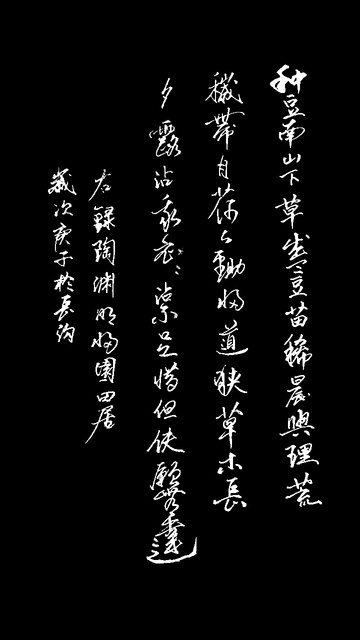 种豆南山下草盛豆苗稀晨興理荒
穢帶月荷鋤歸道狹草木長
夕露沾我衣〻沾不足惜但使願無違
右錄陶渊明歸園田居
歲次庚子於長